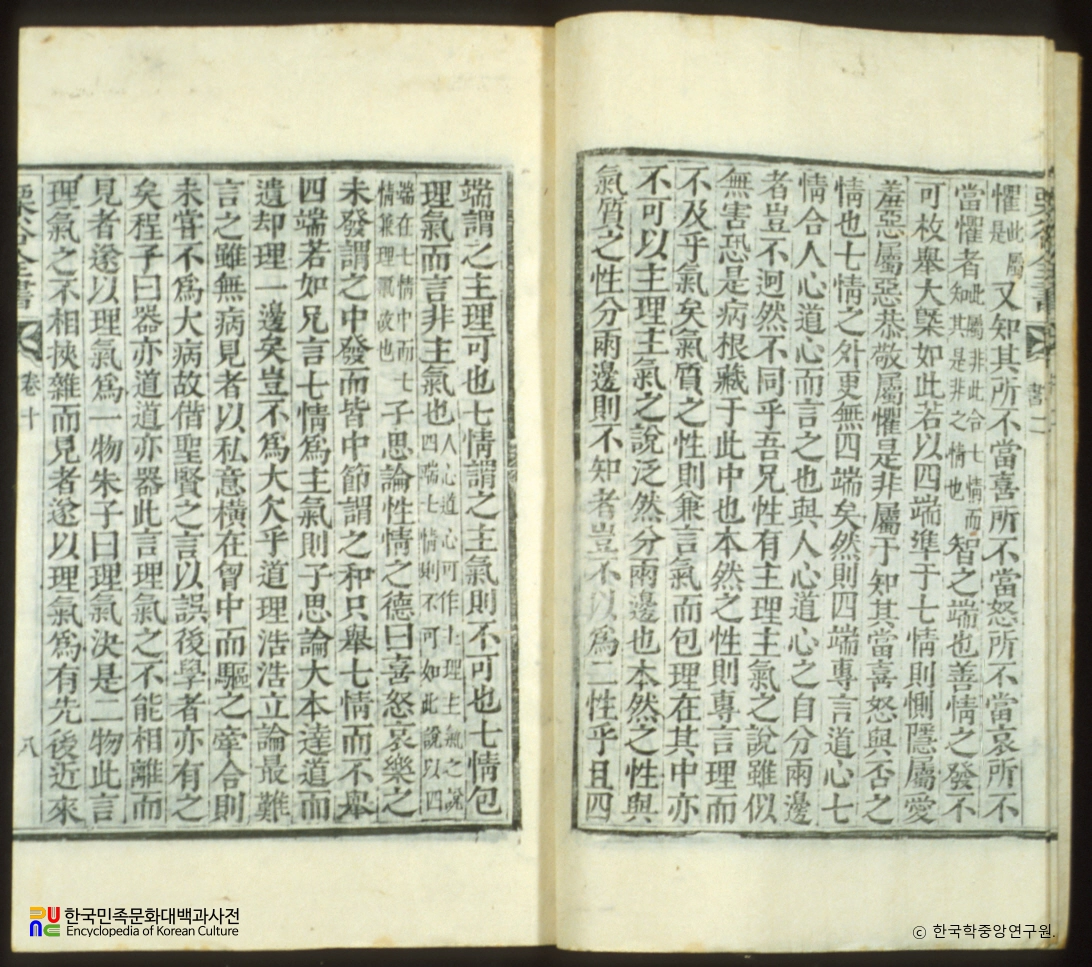 懼此屬是又知其所不當喜所不當怒所不當哀所不
當懼者此屬非此合七情而知其是非之情也智之端也善情之發不
可枚舉大槩如此若以四端準于七情則惻隱屬愛
羞惡屬惡恭敬屬懼是非屬于知其當喜怒與否之
情也七情之外更無四端矣然則四端專言道心七
情合人心道心而言之也與人心道心之自分兩邊
者豈不逈然不同乎吾兄性有主理主氣之說雖似
無害恐是病根藏于此中也本然之性則專言理而
不及乎氣矣氣質之性則兼言氣而包理在其中亦
不可以主理主氣之說泛然分兩邊也本然之性與
氣質之性分兩邊則不知者豈不以爲二性乎且四
端謂之主理可也七情謂之主氣則不可也七情包
理氣而言非主氣也人心道心可作主理主氣之說四端七情則不可如此說以四
端在七情中而七情兼理氣故也子思論性情之德曰喜怒哀樂之
未發謂之中發而皆中節謂之和只舉七情而不舉
四端若如兄言七情爲主氣則子思論大本達道而
遺却理一邊矣豈不爲大欠乎道理浩浩立論最難
言之雖無病見者以私意橫在胷中而驅之牽合則
未甞不爲大病故借聖賢之言以誤後學者亦有之
矣程子曰器亦道道亦器此言理氣之不能相離而
見者遂以理氣爲一物朱子曰理氣決是二物此言
理氣之不相挾雜而見者遂以理氣爲有先後近來
栗谷全書
卷十
八
한국민족문화대백과사전
Encyclopedia of Korean Culture
ⓒ 한국학중앙연구원.